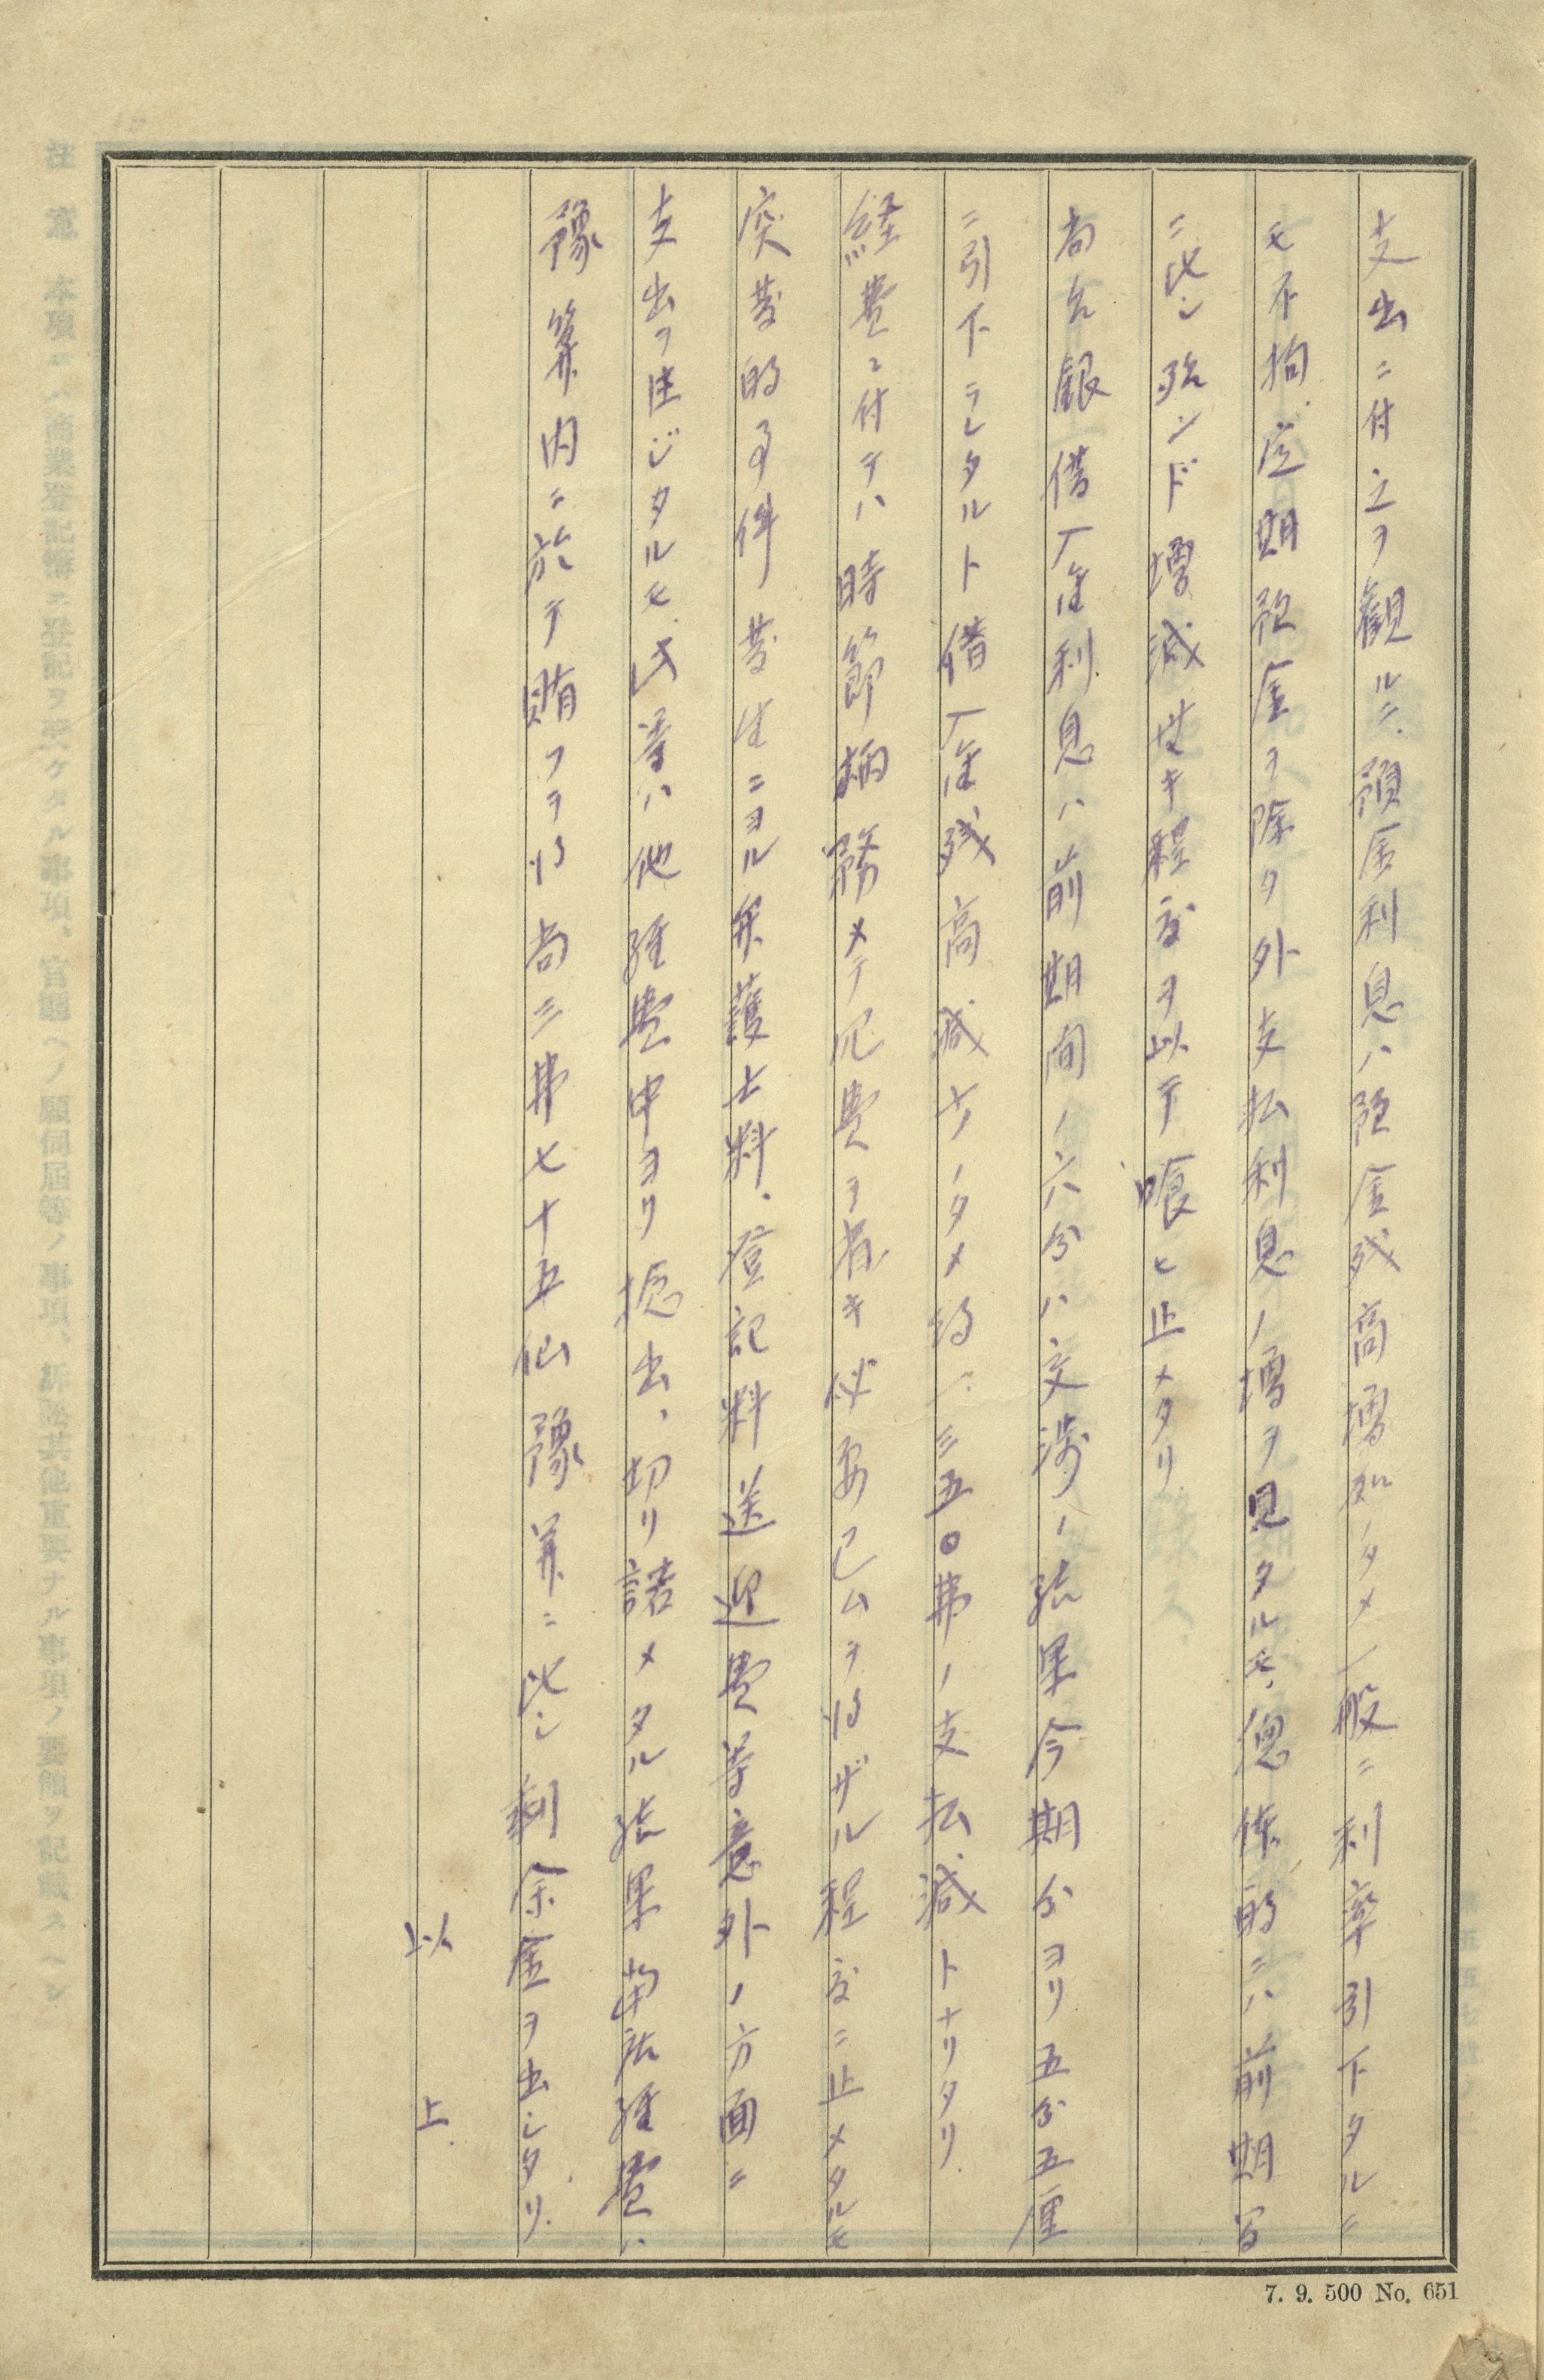 支出ニ付之ヲ観ルニ、預金利息ハ預金残高増加ノタメ一般ニ利率引下タルニ
モ不拘、定期預金ヲ除ク外支払利息ノ増ヲ見タルモ、総体的ニハ前期
ニ比シ殆ンド増減ナキ程度ヲ以テ喰ヒ止メタリ
尚台銀借入金利息ハ前期間ノ六分ハ交渉ノ結果今期分ヨリ五分五厘
ニ引下ラレタルト借入金残高減少ノタメ約一、三五〇弗ノ支払減トナリタリ
経費ニ付テハ時節柄務メテ冗費ヲ省キ必要已ムヲ得ザル程度ニ止メタルモ
突発的事件発生ニヨル弁護士料、登記料送迎費等意外ノ方面ニ
支出ヲ生ジタルモ、此等ハ他経費中ヨリ捻出、切リ詰メタル結果当店経費ハ
豫算内ニ於テ賄フヲ得尚三弗七十五仙豫算ニ比シ剰余金ヲ出シタリ
以上
7. 9. 500 No. 651